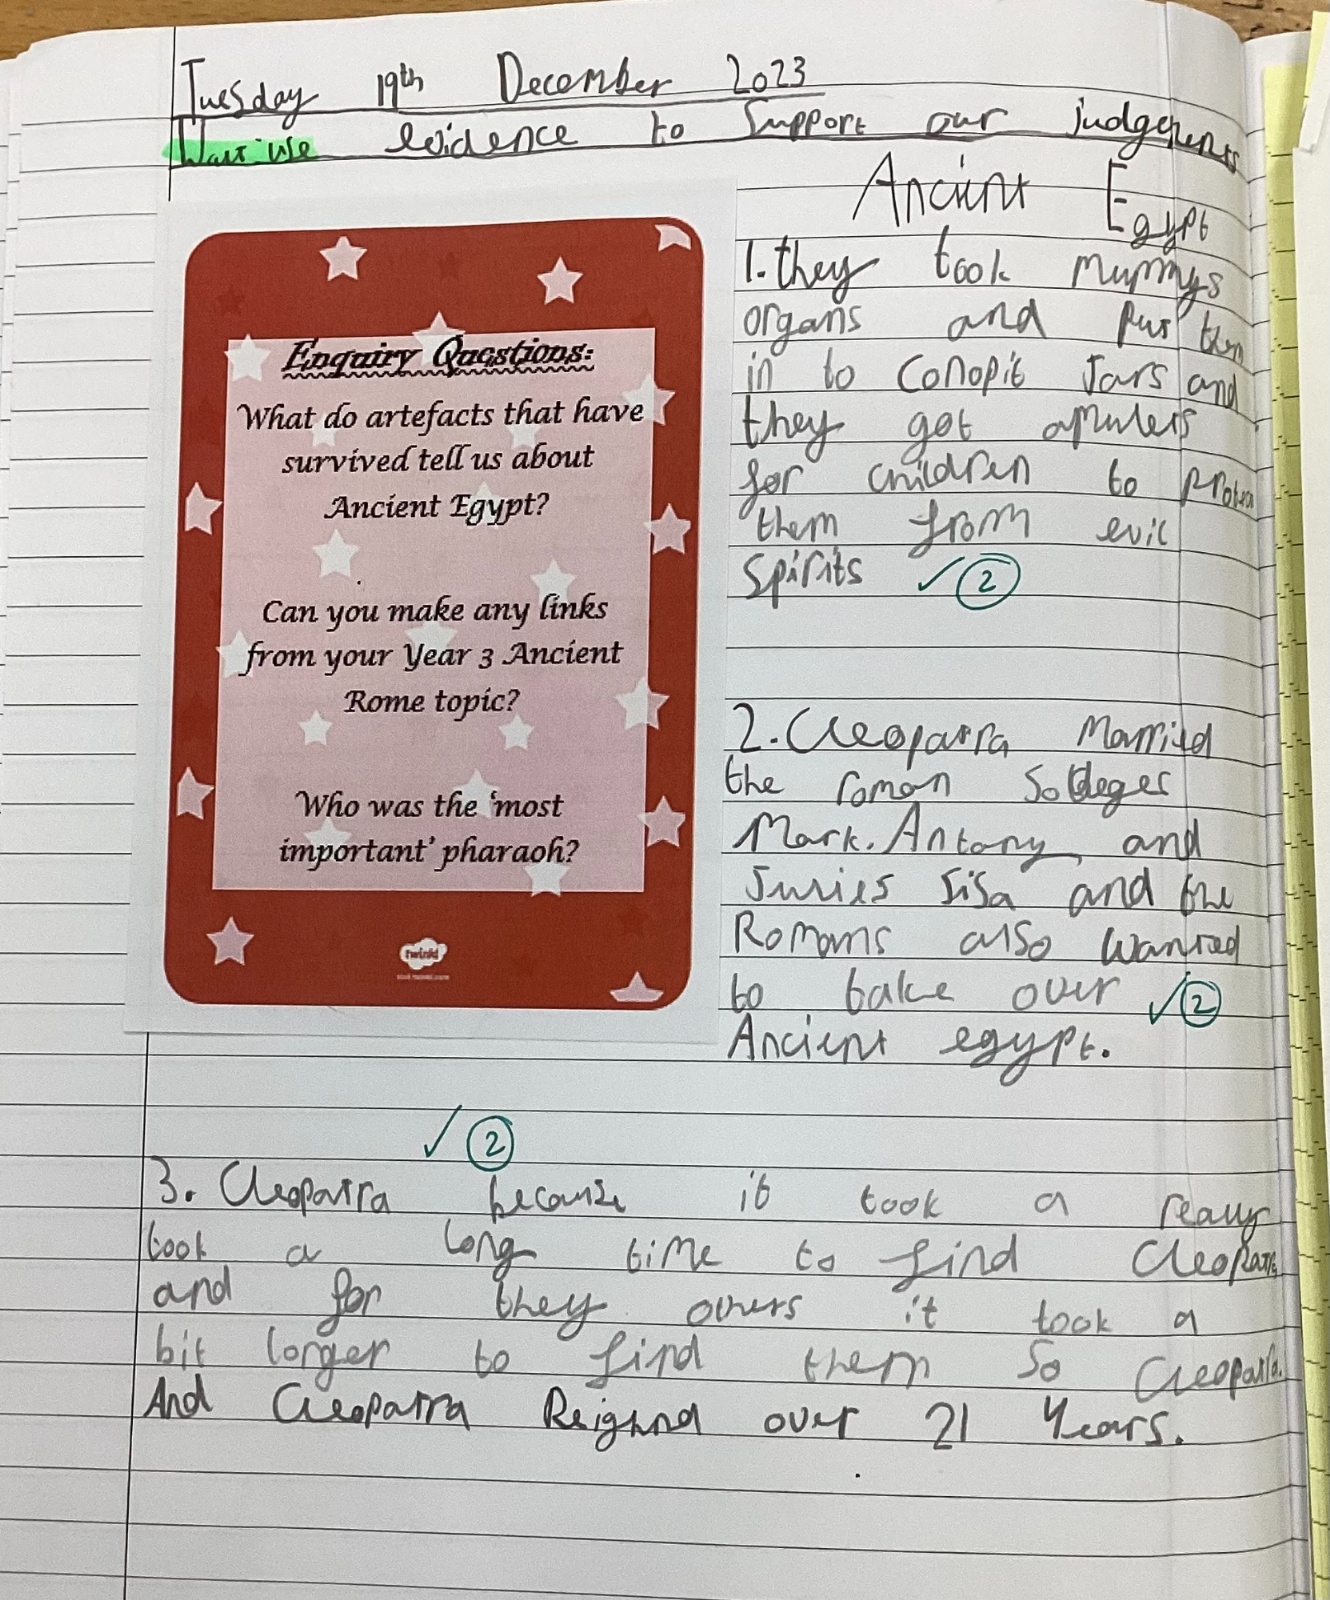 Tuesday 19th December 2023
evidence to support our judgements
Enquiry Questions:
What do artefacts that have
survived tell us about
Ancient Egypt?
Can you make any links
from your Year 3 Ancient
Rome topic?
Who was the 'most
important' pharaoh?
twinkl
Ancient Egypt
1. they took mummys
organs and put them
in to Conopit Jars and
they got amulets
for children to protect
them from evil
spirits ✓ 2
2. Cleopatra Married
the roman
Mark. Antony and
Juries Sisa and the
Romans also wanted
to take over ✓ 2
Ancient egypt.
✓ 2
3. Cleopatra because it took a really
took a long time to find Cleopatra
and for they others it took a
bit longer to find them so Cleopatra.
And Cleopatra Reighnd over 21 Years.